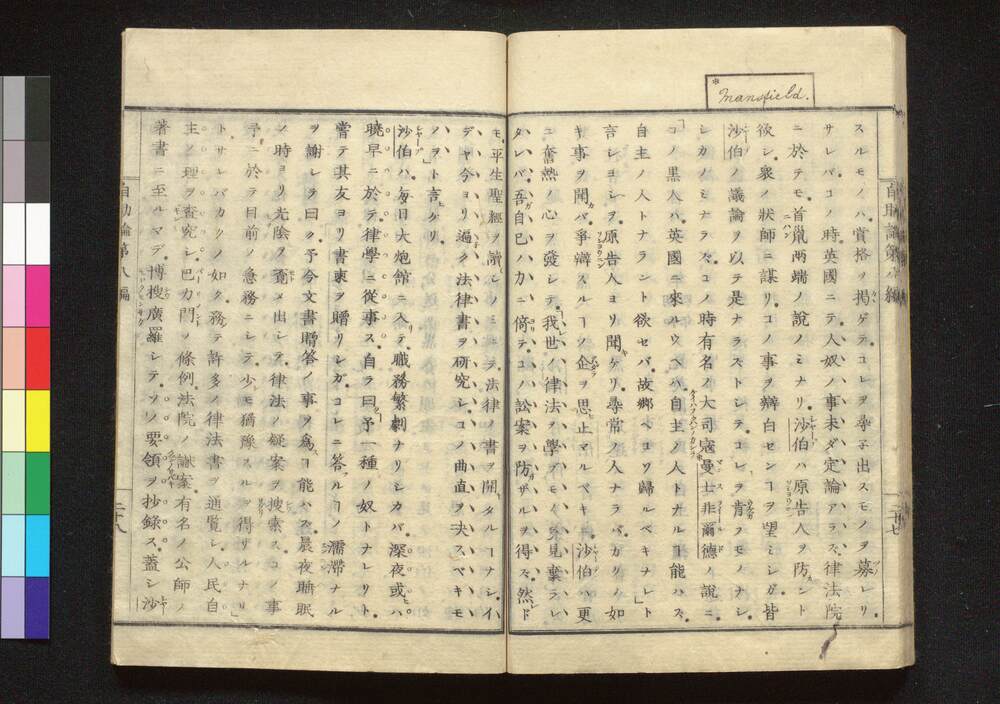 * Mansfield.
スルモノハ賞格ヲ掲ゲテコレヲ尋子出スモノヲ募レリ
サレバコノ時英國ニテ人奴ノ事未ダ定論アラズ律法院
ニ於テモ首鼠兩端ノ說ノミナリ沙伯ハ原告人ヲ防カント
欲シ衆ノ狀師ニ謀リコノ事ヲ辯白センヿヲ望ミシガ皆
沙伯ノ議論ヲ以テ是ナラストシテコレヲ肯フモノナシ
シカノミナラズコノ時有名ノ大司寇曼士非爾德ノ說ニ
コノ黑人ハ英國ニ來ルウヘハ自主ノ人トナルヿ能ハズ
自主ノ人トナラント欲セバ故鄉ヘコソ歸ルベキナレト
言シヨシヲ原告人ヨリ聞ケリ尋常ノ人ナラバカリノ如
キ事ヲ聞バ爭辯スルヿノ企ヲ思止マルベキニ沙伯ハ更
ニ奮熱ノ心ヲ發シテ我世ノ律法ヲ學ブモノニ見棄ラレ
タレバ吾自己ハ力ニ倚テコノ訟案ヲ防ザルヲ得ズ然ド
自助論第八編
二十七
モ平生聖經ヲ讀シノミニテ法律ノ書ヲ開タルヿナシイ
デヤ今ヨリ遍ク法律書ヲ研究シコノ曲直ヲ決スベキモ
ノヲト言ケリ
沙伯ハ每日大炮館ニ入テ職務繁劇ナリシカバ深夜或ハ
曉早ニ於テ律學ニ從事ス自ラ曰ク予一種ノ奴トナレリト
嘗テ其友ヨリ書柬ヲ贈リシガコレニ答ルヿノ濡滯ナル
ヲ謝シテ曰ク予今文書贈答ノ事ヲ爲スヿ能ハズ晨夜睡眠
ノ時ヨリ光陰ヲ覔メ出シテ律法ノ疑案ヲ搜索スコノ事
予ニ於テ目前ノ急務ニシテ少モ猶豫スルヲ得ザルナリ
トサレバカクノ如ク務テ許多ノ律法書ヲ通覽シ人民自
主ノ理ヲ查究シ巴力門ノ條例法院ノ讞案有名ノ公師ノ
著書ニ至ルマデ博搜廣羅シテソノ要領ヲ抄錄ス蓋シ沙
自助論第八編
二十八